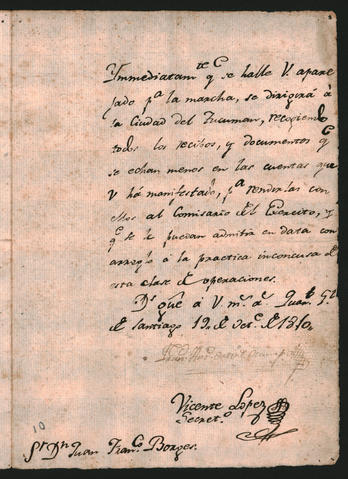 Ymmediatam.te q.e se halle V. apare
jado p.a la marcha, se dirigirá à
la Ciudad del Tucuman, recogiendo
todos los recibos, y documentos q.e
se echan menos en las cuentas que
V há manifestado, p.a rendirlas con
ellos al Comisario del Exercito, y
q.e se le puedan admitir en data con
arreglo à la practica inconcusa de
esta clase de operaciones.
D.s gũe à V m.s a.s Quart.l G.l
de Santiago 19, de 1810,,
Vicente Lopez
Secret.o
S.r D.n Juan Fran.co Borges.
10